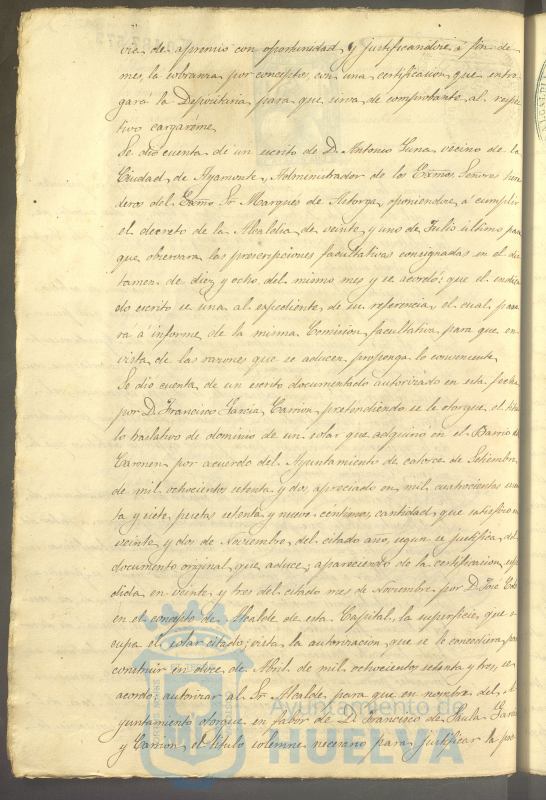 via de apremio con oportunidad, y justificandose á fin de
mes, la cobranza por conceptos, con una certificacion, que entre-
gará la Depositaria para que sirva de comprobante al respec-
tivo cargareme.
Se dió cuenta de un escrito de D. Antonio Luna, vecino de la
Ciudad de Ayamonte, Administrador de los Exmos. Señores here-
deros del Exmo. Sr. Marques de Astorga, oponiendose á cumplir
el decreto de la Alcaldia de veinte y uno de Julio último para
que observara las prescripciones facultativas consignadas en el dic-
tamen de diez y ocho del mismo mes y se acordó: que el indica-
do escrito se una al expediente de su referencia, el cual pasa-
ra á informe de la misma Comision facultativa para que en
vista de las razones que se aducen, proponga lo conveniente.
Se dió cuenta de un escrito documentado autorizado en esta fecha
por D. Francisco Garcia Carrion, pretendiendo se le otorgue el títu-
lo traslativo de dominio de un solar que adquirió en el Barrio de
por acuerdo del Ayuntamiento de catorce de Setiembre
de mil ochocientos setenta y dos, apreciado en mil cuatrocientas
ta y siete pesetas setenta y nueve centimos, cantidad que satisfizo en
veinte y dos de Noviembre del citado año, segun se justifica del
documento original que aduce, apareciendo de la certificacion espe-
dida en veinte y tres del citado mes de Noviembre por D. José
en el concepto de Alcalde de esta Capital, la superficie que o-
cupa el solar citado; vista la autorizacion que se le concediera para
construir en doce de Abril de mil ochocientos setenta y tres, se
acordó: autorizar al Sr. Alcalde para que en nombre del A-
yuntamiento otorgue en favor de D. Francisco de Paula Garcia
y Carrion el título solemne necesario para justificar la pro-
Ayuntamiento de
HUELVA